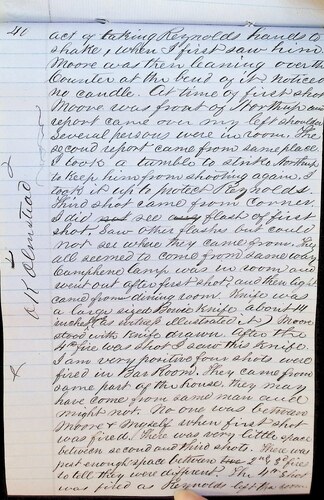 40
act of taking Reynolds hands to
shake, when I first saw him
Moore was then leaning over the
Counter at the bend of it notices
no candle. At time of first shot
Moore was front of Northup and
report came over my left shoulder
Several persons were in room. The
second report came from same place.
I took a tumble to stool to Northup
to keep him from shooting again. I
took it up to protect Reynolds.
Third shot came from corner.
I did not see any flash of first
shot. Saw other flashes but could
not see where they came from. They
all seemed to come from same way
Camphene lamp was in room and
went out after first shot and then light
came from dining room. Knife was
a large sized Bowie Knife. about 14
inches as witness illustrated it) Moore
stood with knife drawn. After the
4th fire was shot I saw this knife.
I am very positive four shots were
fired in Bar Room. They came from
same part of the house, they may
have come from same man and
might not. No one was between
Moore & myself when first shot
was fired. There was very little space
between second and third shots. There was
just enough space between 2nd & 3rd fires
to tell they were different. The 4th shot
was fired as Reynolds left the room
OK Olmstead